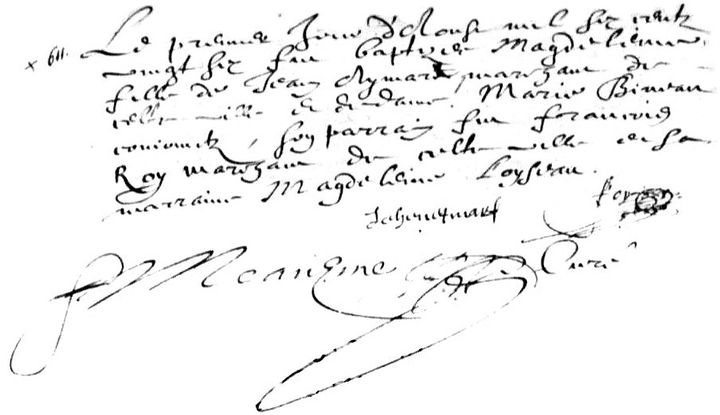 x 611. Le premier Jour d'Aoust mil six centz
vingt six fut baptizée Magdeleinne
fille de Jean Aymard marchant de
ceste ville et de dame Marie Bineau
conioinctz, son parrain fut francois
Roy marchant de cette ville et sa
marraine Magdeleine Loyseau.
Roy
Curé